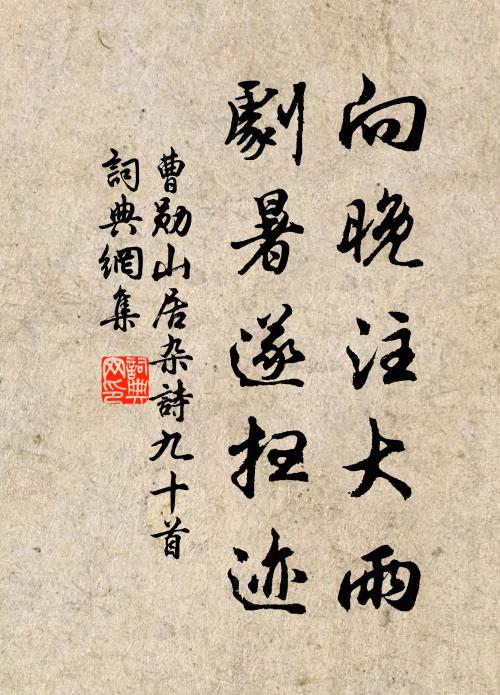 向晚注大雨
劇暑遂扫迹
曹勋山居杂詩九十首
詞典網集
詞典网印